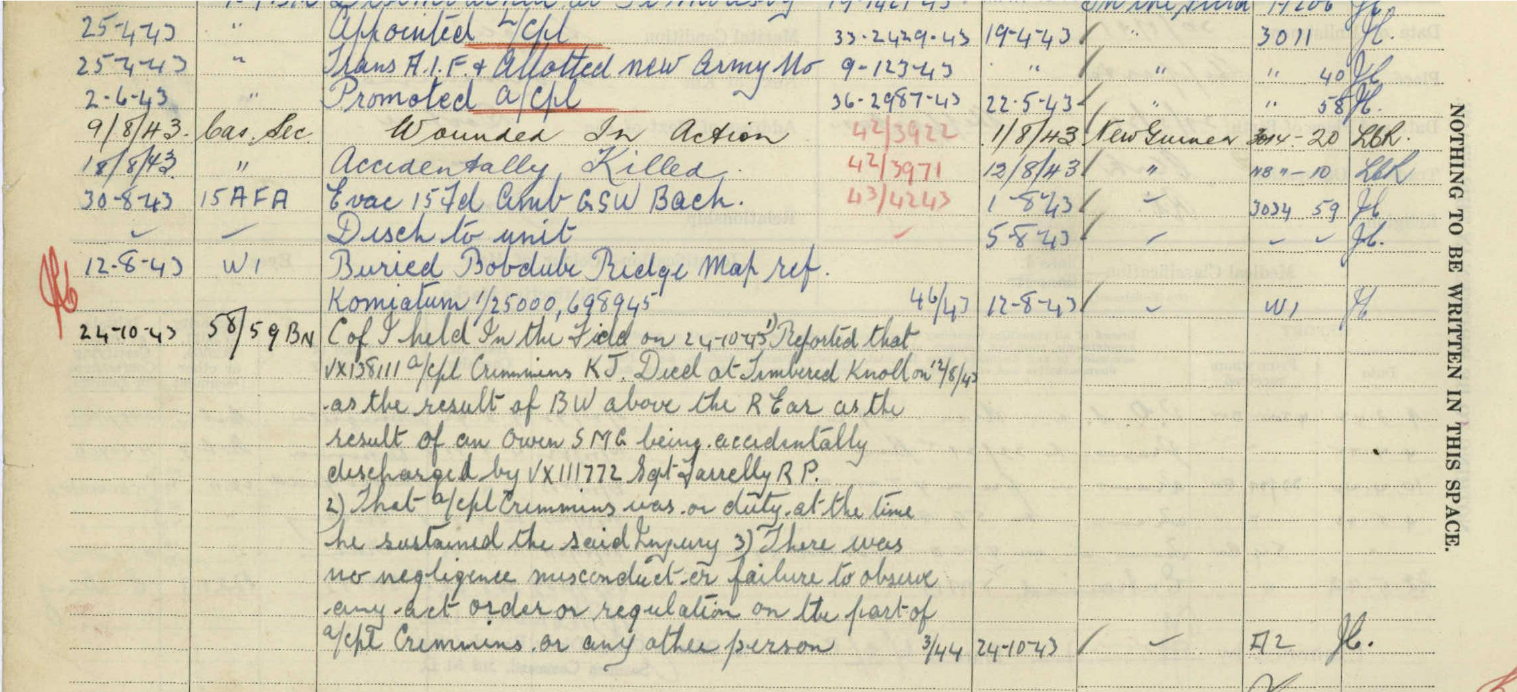 In the Field 19206 Jb
25-4-43 " Appointed L/Cpl 33-2429-43 19-4-43 " 3011 Jb.
25-4-43 " Trans A.I.F. & Allotted new Army No 9-123-43 " " " " 40 Jb
2-6-43 " Promoted a/Cpl 36-2987-43 22-5-43 " " 58 Jb.
9/8/43. Cas. Sec Wounded In Action 42/3922 1/8/43 New Guinea 3014-20 LBR.
18/8/43. " Accidentally Killed. 42/3971 12/8/43 " " -10 LBR
30-8-43 15 AFA Evac 15 Fd Amb GSW Back. 43/4243 1-8-43 " 3034 59 Jb
Disch to unit 5-8-43 Jb.
12-8-43 W1 Buried Bobdubi Ridge Map ref.
Komiatum 1/25000, 698945 46/43 12-8-43 W1 Jb
24-10-43 58/59 BN C of I held In the Field on 24-10-43 1) Reported that
VX138111 a/Cpl Crimmins KJ. Died at Timbered Knoll on 12/8/43
as the result of BW above the R Ear as the
result of an Owen SMG being accidentally
discharged by VX111772 Sgt Farrelly R P.
2) That a/Cpl Crimmins was on duty at the time
he sustained the said Injury 3) There was
no negligence misconduct or failure to observe
any act order or regulation on the part of
a/Cpl Crimmins or any other person 3/44 24-10-43 A2 Jb.
NOTHING TO BE WRITTEN IN THIS SPACE.